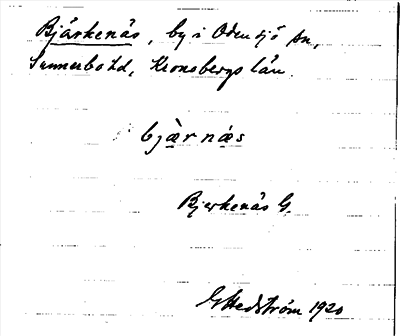 Bjärkenäs, by i Odensjö sn,
Sunnerbo hd, Kronobergs län.
bjæ̀rnæs
Bjerkenäs G.
G Hedström 1920